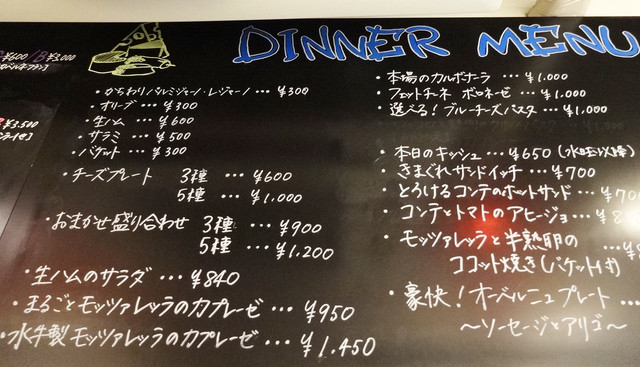 ¥600/B ¥3,000
¥3,500
DINNER MENU
・かちわりパルミジャーノ・レジャーノ … ¥300
・オリーブ … ¥300
・生ハム … ¥600
・サラミ … ¥500
・バケット … ¥300
・チーズプレート 3種 … ¥600
5種 … ¥1.000
・おまかせ盛り合わせ 3種 … ¥900
5種 … ¥1.200
・生ハムのサラダ … ¥840
・まるごとモッツァレッラのカプレーゼ … ¥950
・水牛製モッツァレッラのカプレーゼ … ¥1.450
・本場のカルボナーラ … ¥1.000
・フェットチーネ ボロネーゼ … ¥1.000
・選べる！ブルーチーズパスタ … ¥1,000
・本日のキッシュ … ¥650 (水曜以降)
・きまぐれサンドイッチ … ¥700
・とろけるコンテのホットサンド … ¥700
・コンテとトマトのアヒージョ … ¥8
・モッツァレッラと半熟卵の
ココット焼き(バケット付) … ¥8
・豪快！オーベルニュプレート …
～ソーセージとアリゴ～